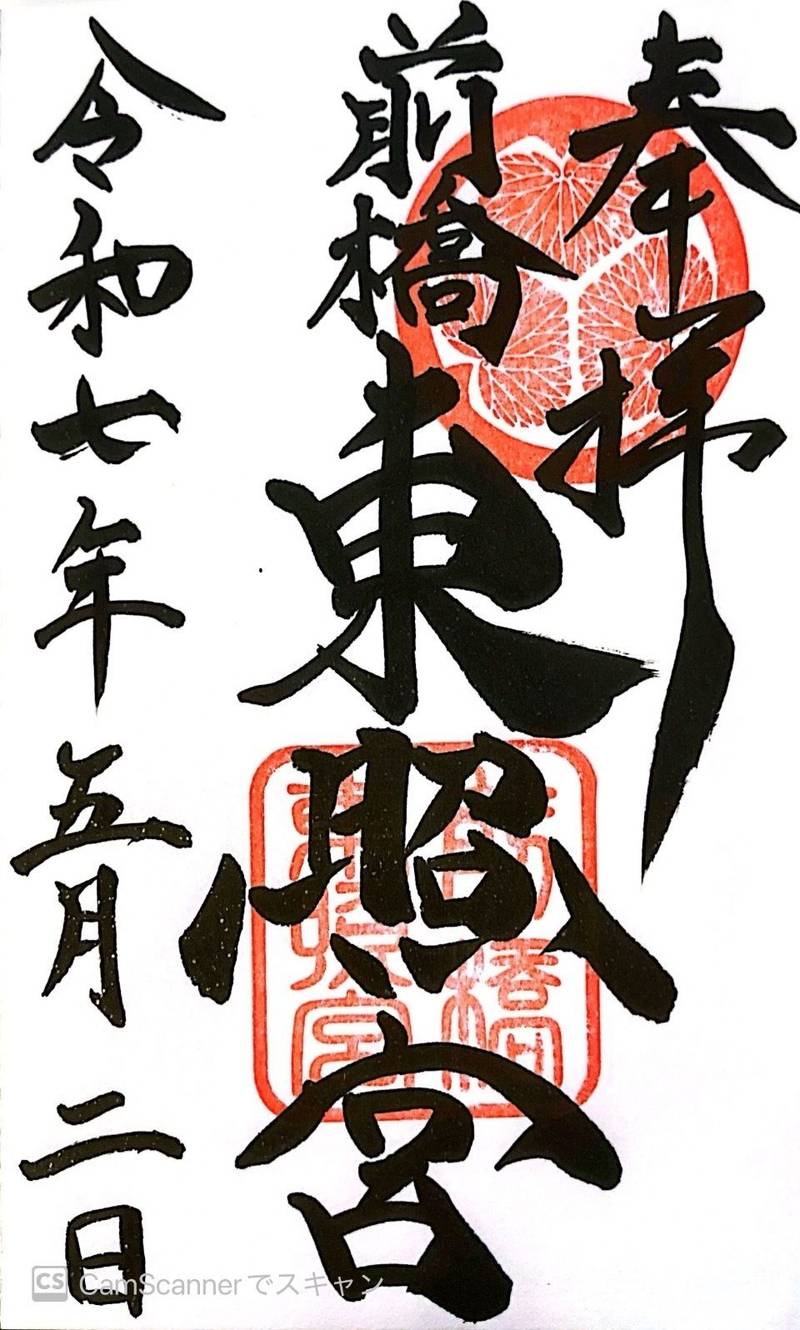 奉拝
前橋東照宮
令和七年五月二日
前橋東照宮
CS CamScannerでスキャン